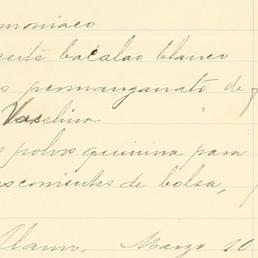 moniaco
ceite bacalao blanco
s permanganato de
Vaselina
s polvos quinina para
de bolsa,
Alamo, Marzo 10